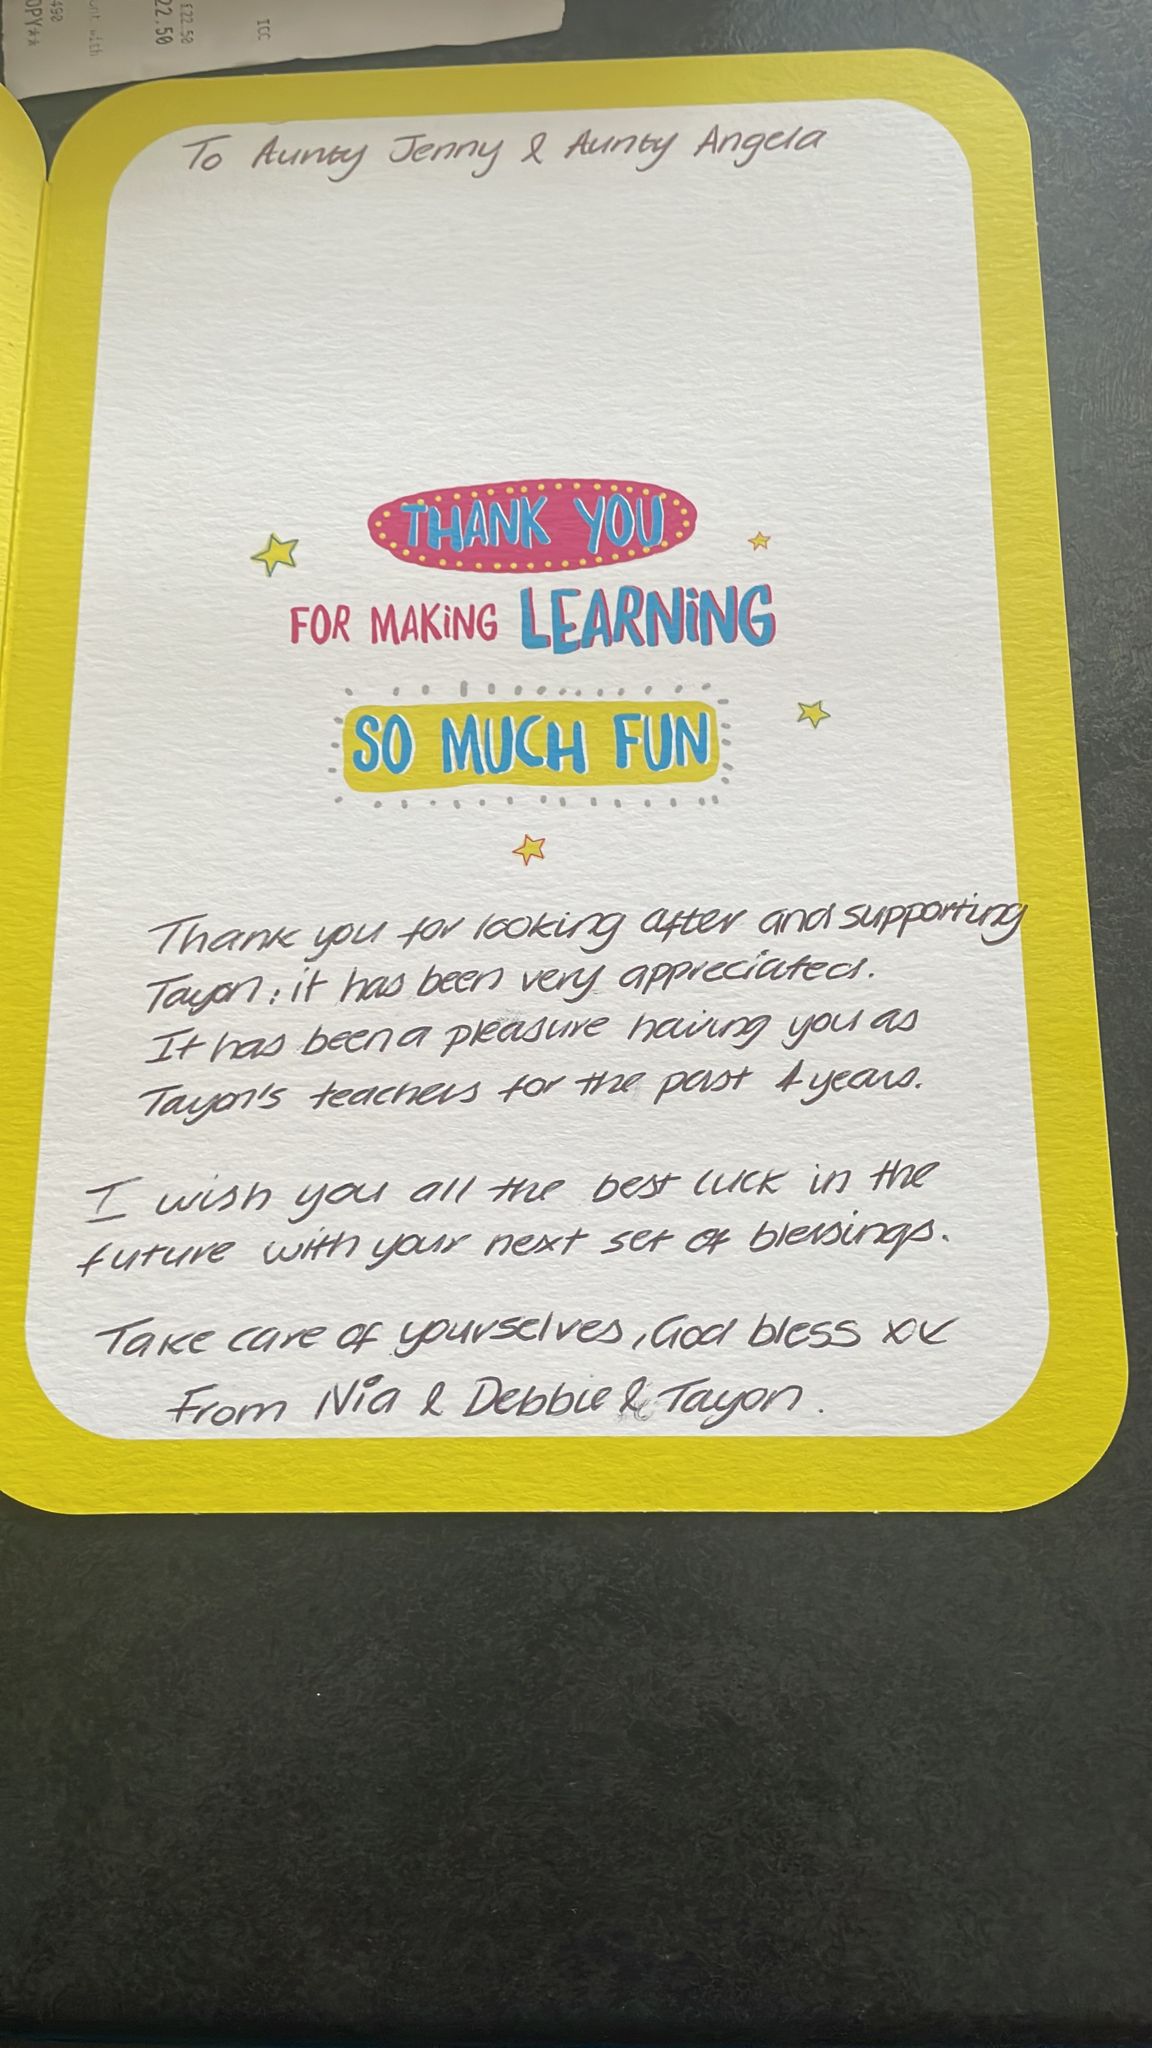 OPY**
490
unt with
22.50
£22.50
ICC
To Aunty Jenny & Aunty Angela
THANK YOU
FOR MAKiNG LEARNiNG
SO MUCH FUN
Thank you for looking after and supporting
Tayon; it has been very appreciated.
It has been a pleasure having you as
Tayon's teachers for the past 4 years.
I wish you all the best luck in the
future with your next set of blessings.
Take care of yourselves, God bless xx
From Nia & Debbie & Tayon.